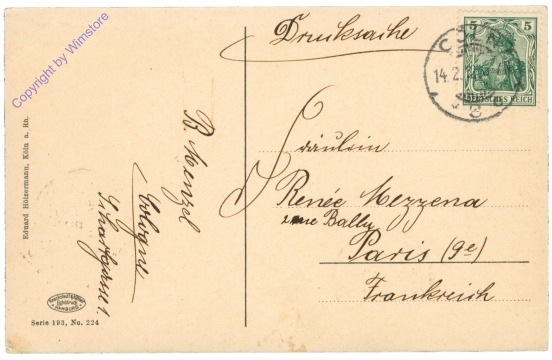 Drucksache
5 5
DEUTSCHES REICH
14.2.
Copyright by Wimstore
Eduard Hölzermann, Köln a. Rh.
B. Menzel
Cologne
Fräulein
Renée Mezzena
rue Bally
Paris (9e)
Frankreich
Serie 193, No. 224